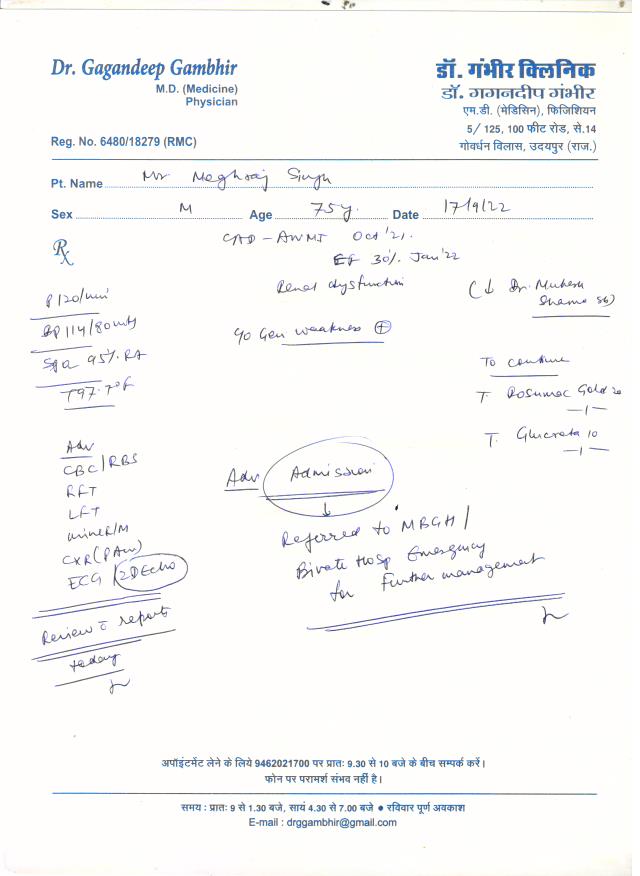 Dr. Gagandeep Gambhir
M.D. (Medicine)
Physician
Reg. No. 6480/18279 (RMC)
डॉ. गंभीर क्लिनिक
डॉ. गगनदीप गंभीर
एम.डी. (मेडिसिन), फिजिशियन
5/ 125, 100 फीट रोड, से.14
गोवर्धन विलास, उदयपुर (राज.)
Pt. Name Mr Meghraj Singh
Sex M Age 75y. Date 17/9/22
Rx
CAD - AWMI Oct '21.
EF 30% Jan '22
Renal dysfunction
(↓ Dr. Mukesh
Sharma
P 120/min
BP 114/80
95% RA
T 97.7°F
Gen weakness ⊕
To continue
T. Rosumac Gold 20
—1—
T. Glucreta 10
—1—
Adv
CBC/RBS
RFT
LFT
urine R/M
CXR (PA
ECG / 2D Echo
Review c̄ reports
today
Adv Admission
↓
Referred to MBGH /
Private Hosp Emergency
for Further management
अपॉइंटमेंट लेने के लिये 9462021700 पर प्रातः 9.30 से 10 बजे के बीच सम्पर्क करें।
फोन पर परामर्श संभव नहीं है।
समय : प्रातः 9 से 1.30 बजे, सायं 4.30 से 7.00 बजे ● रविवार पूर्ण अवकाश
E-mail : drggambhir@gmail.com